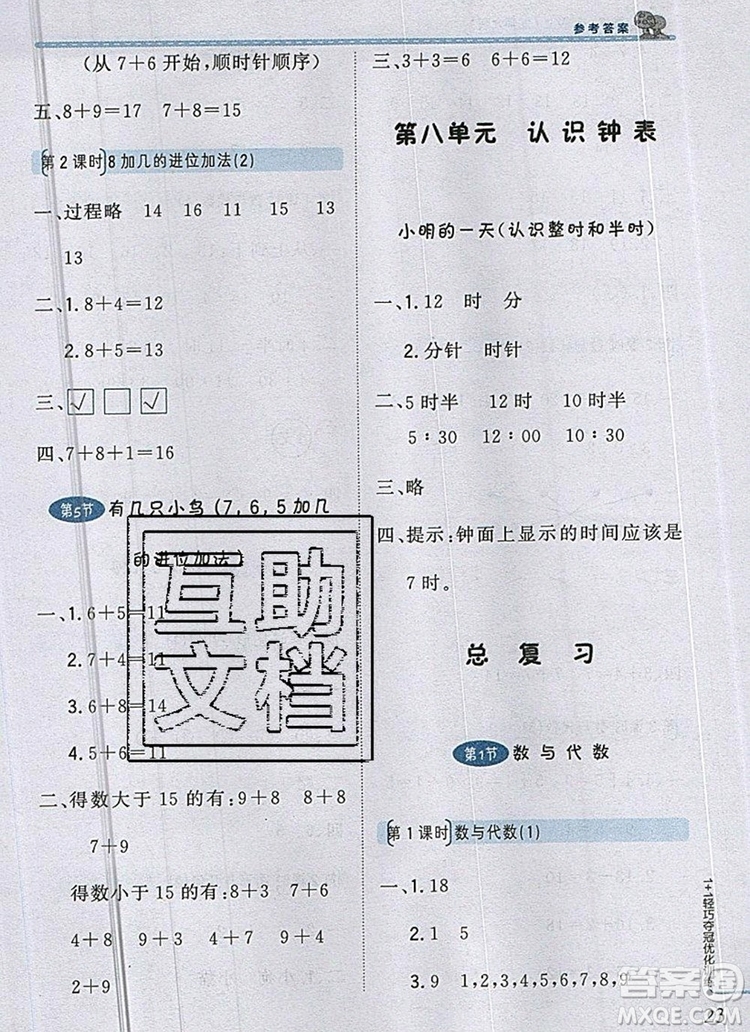 参考答案
(从7+6开始,顺时针顺序)
五、8+9=17 7+8=15
第2课时 8加几的进位加法(2)
一、过程略 14 16 11 15 13
13
二、1.8+4=12
2.8+5=13
三、☑ ☐ ☑
四、7+8+1=16
第5节 有几只小鸟(7,6,5加几
的进位加法)
一、1.6+5=11
4.5+6=11
二、得数大于15的有:9+8 8+8
7+9
得数小于15的有:8+3 7+6
4+8 9+2 8+4 9+4
2+9
三、3+3=6 6+6=12
第八单元 认识钟表
小明的一天(认识整时和半时)
一、1.12 时 分
2.分针 时针
二、5时半 12时 10时半
5:30 12:00 10:30
三、略
四、提示:钟面上显示的时间应该是
7时。
总复习
第1节 数与代数
第1课时 数与代数(1)
一、1.18
2.1 5
3.9 1,2,3,4,5,6,7,8,9
1+1轻巧夺冠优化训练
23
互助
文档
答案圈
MXQE.COM